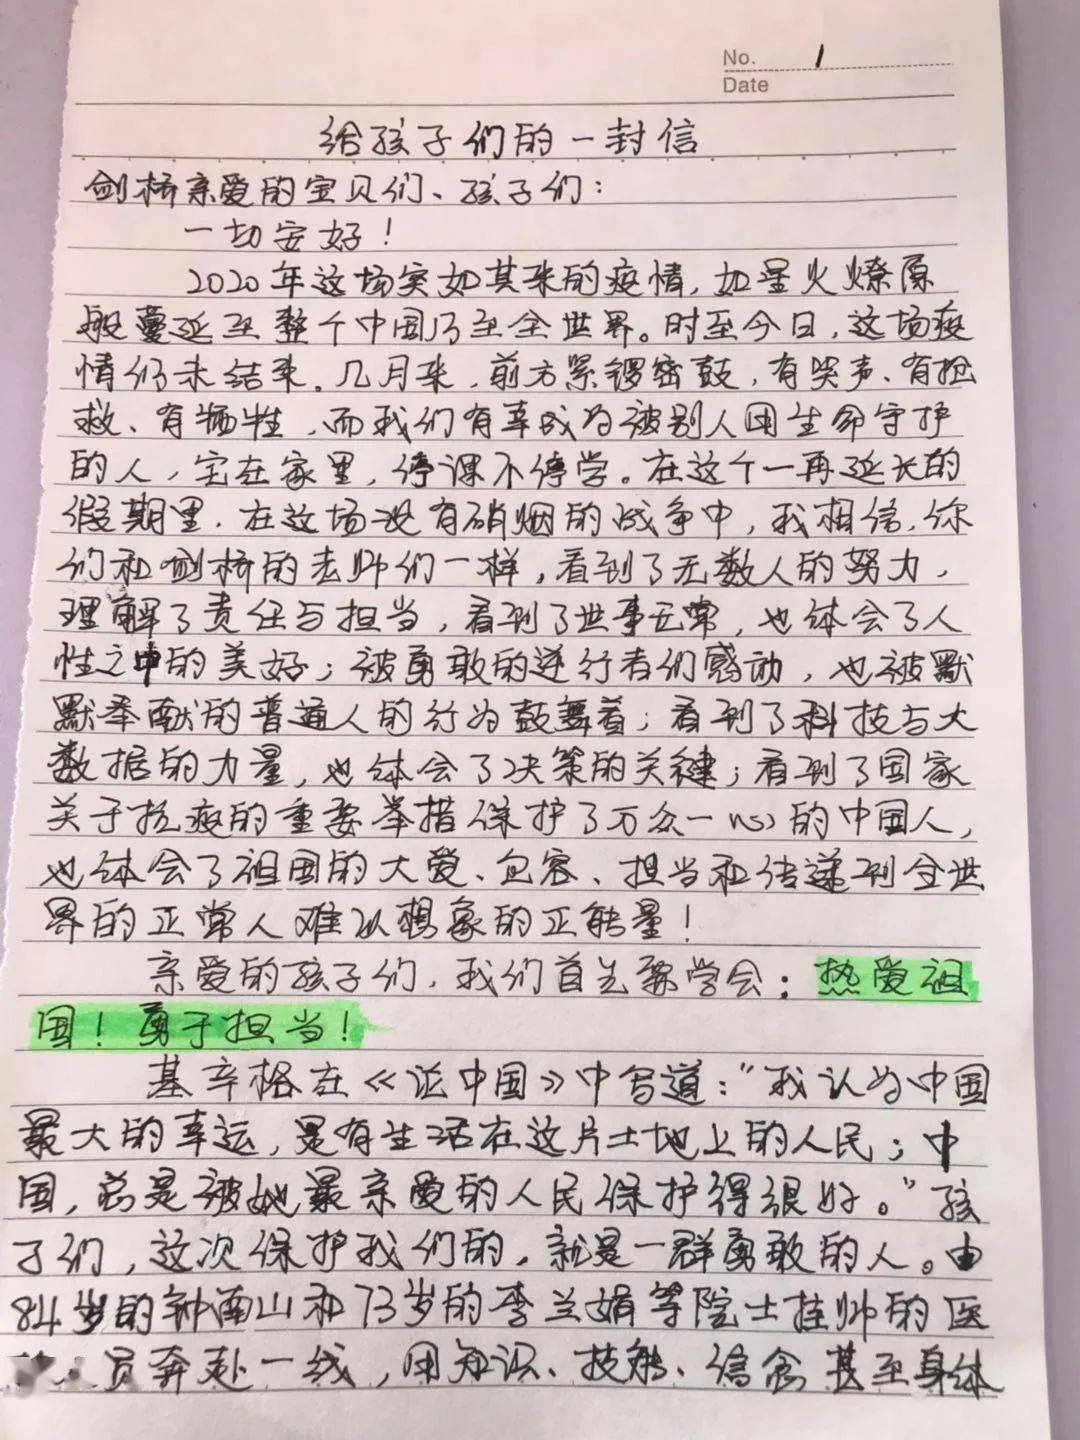 No. 1
Date
给孩子们的一封信
剑桥亲爱的宝贝们、孩子们：
一切安好！
2020年这场突如其来的疫情，如星火燎原
般蔓延至整个中国乃至全世界。时至今日，这场疫
情仍未结束。几月来，前方紧锣密鼓，有哭声、有抢
救、有牺牲，而我们有幸成为被别人用生命守护
的人，宅在家里，停课不停学。在这个一再延长的
假期里，在这场没有硝烟的战争中，我相信，你
们和剑桥的老师们一样，看到了无数人的努力，
理解了责任与担当，看到了世事无常，也体会了人
性之中的美好；被勇敢的逆行者们感动，也被默
默奉献的普通人的行为鼓舞着；看到了科技与大
数据的力量，也体会了决策的关键；看到了国家
关于抗疫的重要举措保护了万众一心的中国人，
也体会了祖国的大爱、包容、担当和传递到全世
界的正常人难以想象的正能量！
亲爱的孩子们，我们首先要学会：热爱祖
国！勇于担当！
基辛格在《论中国》中写道：“我认为中国
最大的幸运，是有生活在这片土地上的人民；中
国，总是被她最亲爱的人民保护得很好。”孩
子们，这次保护我们的，就是一群勇敢的人。由
84岁的钟南山和73岁的李兰娟等院士挂帅的医
员奔赴一线，用知识、技能、信念甚至身体